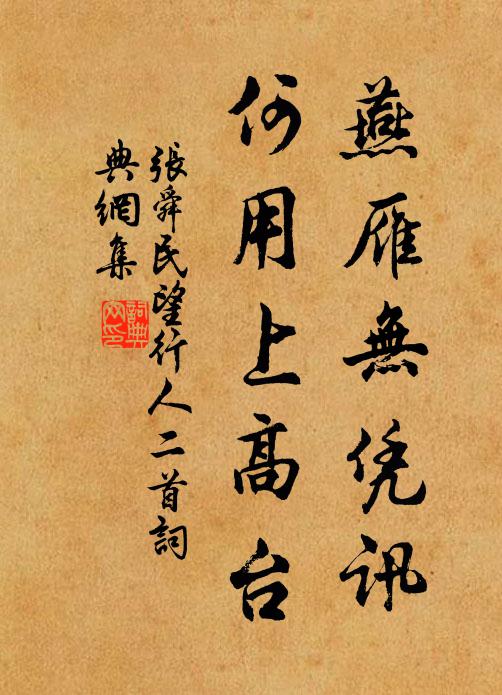 燕雁無凭訊
何用上高台
張舜民望行人二首詞
典網集
詞典
网印